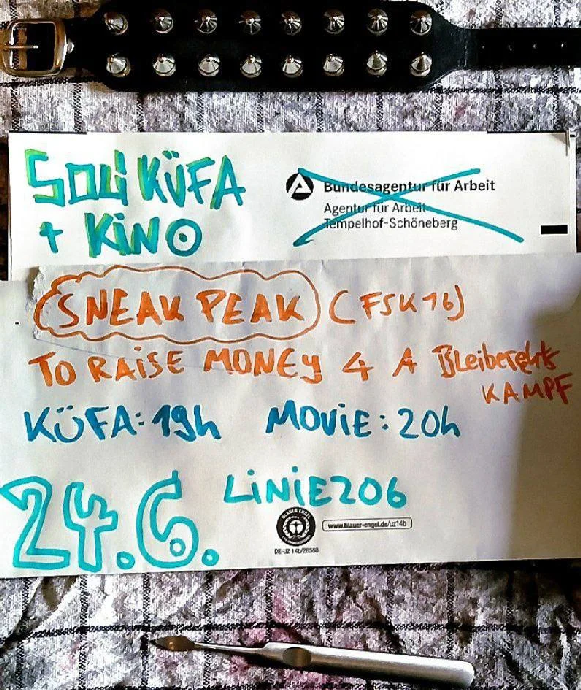 SOLI KÜFA
+ KINO
Bundesagentur für Arbeit
Agentur für Arbeit
Tempelhof-Schöneberg
SNEAK PEAK (FSK 16)
TO RAISE MONEY 4 A Bleiberechts
KAMPF
KÜFA: 19h MOVIE: 20h
24.6. LINIE206
www.blauer-engel.de/uz14b